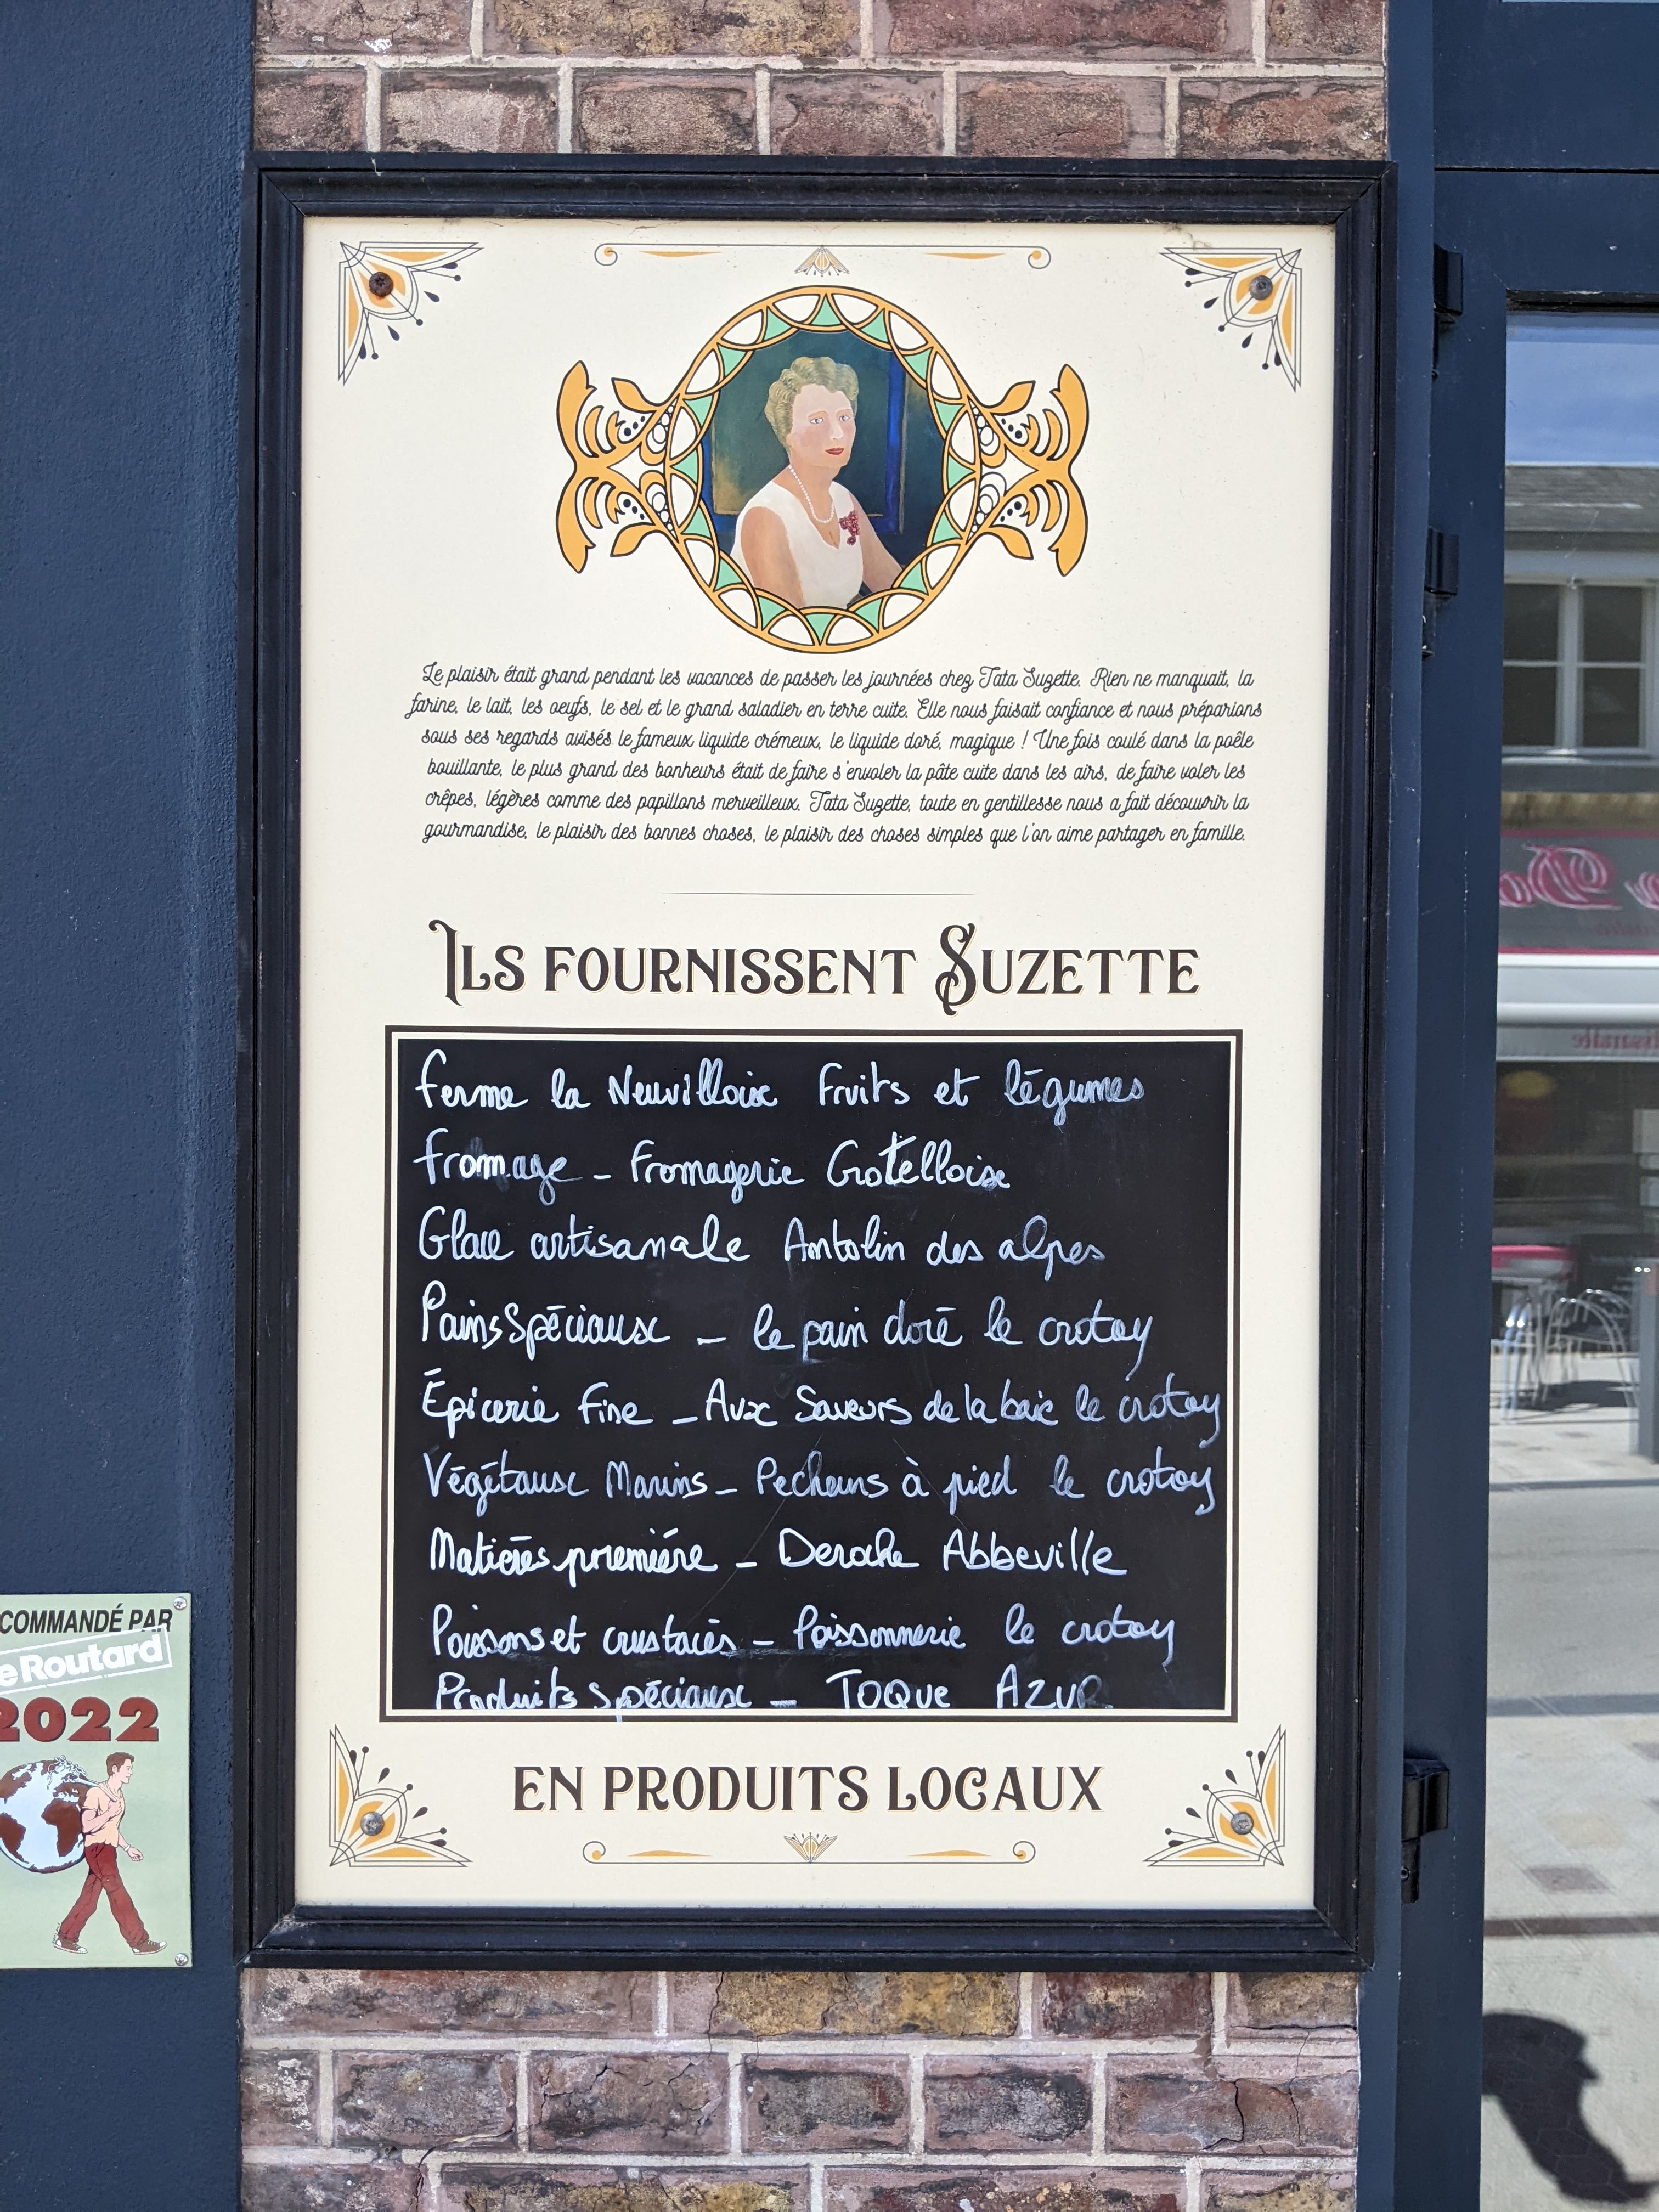 Le plaisir était grand pendant les vacances de passer les journées chez Tata Suzette. Rien ne manquait, la
farine, le lait, les oeufs, le sel et le grand saladier en terre cuite. Elle nous faisait confiance et nous préparions
sous ses regards avisés le fameux liquide crémeux, le liquide doré, magique ! Une fois coulé dans la poêle
bouillante, le plus grand des bonheurs était de faire s'envoler la pâte cuite dans les airs, de faire voler les
crêpes, légères comme des papillons merveilleux. Tata Suzette, toute en gentillesse nous a fait découvrir la
gourmandise, le plaisir des bonnes choses, le plaisir des choses simples que l'on aime partager en famille.
ILS FOURNISSENT SUZETTE
ferme la Neuvilloise Fruits et légumes
fromage - Fromagerie Crotelloise
Glace artisanale Antolin des alpes
Pains Spéciaux - le pain doré le crotoy
Épicerie Fine - Aux Saveurs de la baie le crotoy
Végétaux Marins - Pecheurs à pied le crotoy
Matières première - Deroche Abbeville
Poissons et crustacés - Poissonnerie le crotoy
Produits spéciaux - TOQUE AZUR
EN PRODUITS LOCAUX
COMMANDÉ PAR
e Routard
2022